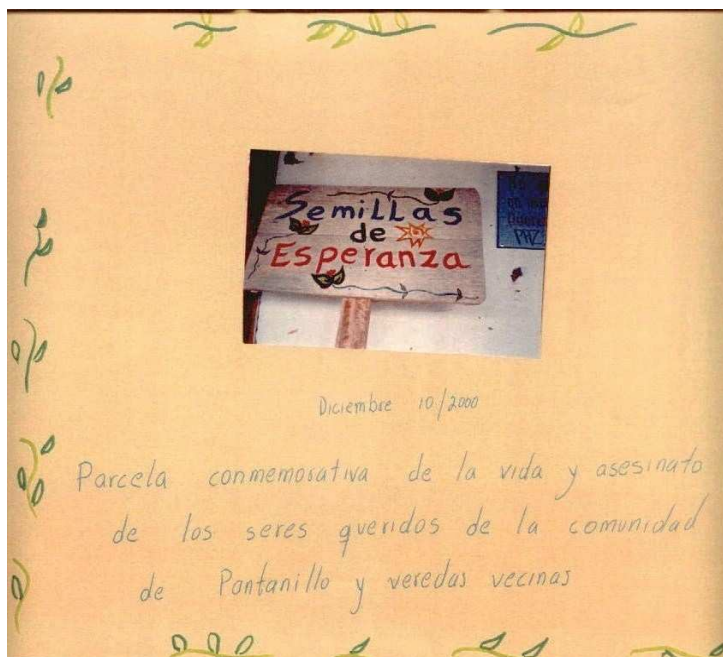 Semillas
de
Esperanza
PAZ
Diciembre 10/2000
Parcela conmemorativa de la vida y asesinato
de los seres queridos de la comunidad
de Pantanillo y veredas vecinas